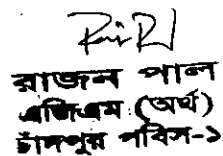 রাজন পাল
এজিএম (অর্থ)
চাঁদপুর পবিস-১